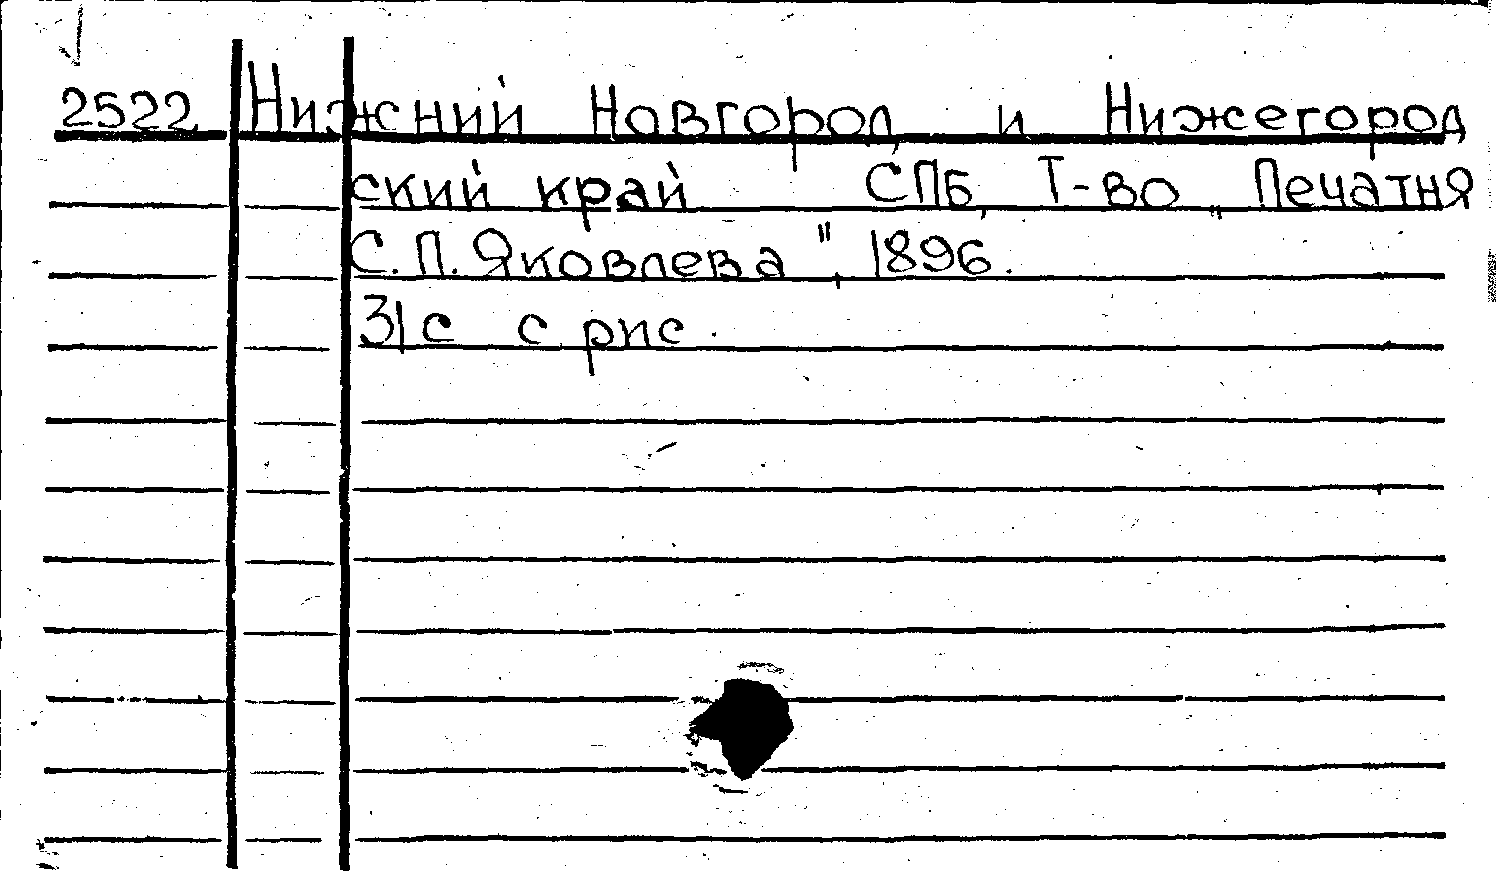 2522 Нижний Новгород и Нижегород
ский край СПБ, Т-во „Печатня
С.П. Яковлева", 1896.
31с с рис.